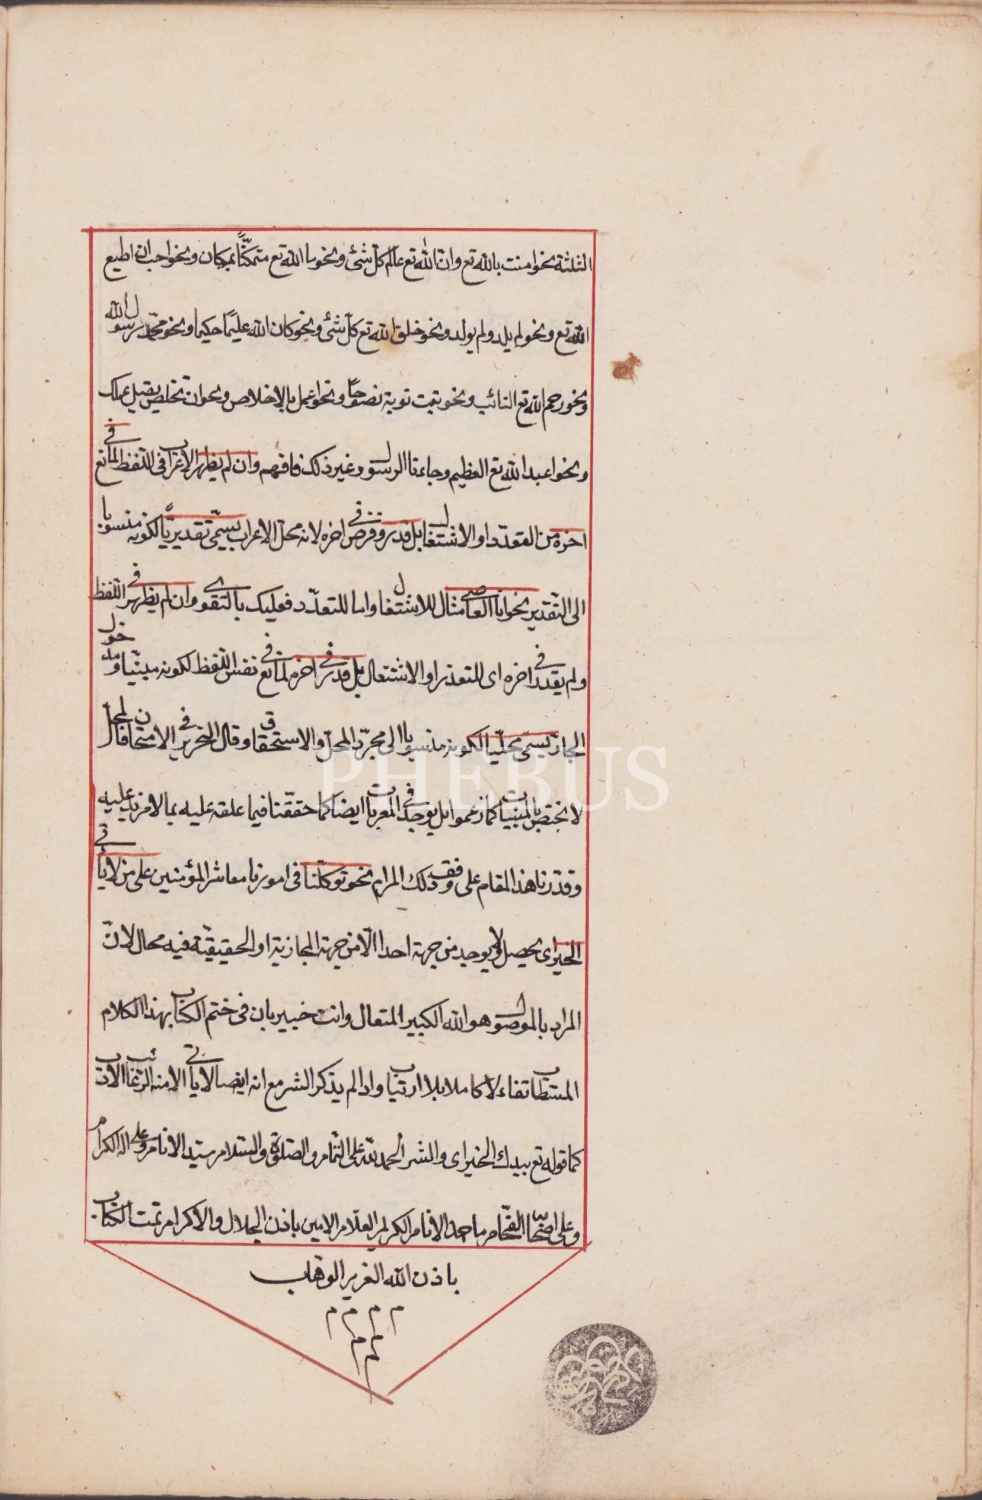 الثلثة نحو امنت بالله تع وان الله تع عالم كل شئ ونحو ما الله تع متمكنا بمكان ونحو احب ان اطيع
الله تع ونحو لم يلد ولم يولد ونحو خلق الله تع كل شئ ونحو كان الله عليما حكيما ونحو محمد رسول الله
ونحو رحم الله تع التائب ونحو تبت توبة نصوحا ونحو اعمل بالاخلاص ونحو ان تخلص يقبل عملك
ونحو اعبد الله تع العظيم وجاءنا الرسول وغير ذلك فافهم وان لم يظهر الاعراب فى اللفظ لمانع فى
اخره من التعدد او الاشتغال بل قدر وفرض فى اخره لانه محل الاعراب يسمى تقديريا لكونه منسوبا
الى التقدير نحو انا العاصى مثال للاشتغال واما للتعدد فعليك بالتقوى وان لم يظهر فى اللفظ
ولم يقدر فى اخره اى للتعذر او الاشتغال بل قدر فى اخره لمانع فى نفس اللفظ لكونه مبنيا ومدخول
الجار يسمى محليا لكونه منسوبا الى مجرد المحل والاستحقاق وقال النحرير فى الامتحان المحل
لا يختص بالمبنيات كما زعموا بل يوجد فى المعربات ايضا كما حققنا فيما علقه عليه بما لا مزيد عليه
وقدرنا هذا المقام على وفق ذلك المرام نحو توكلنا فى امورنا معاشر المؤمنين على من لا يأتى
الخير اى يحصل ولا يوجد من جهة احد الا من جهة المجازية او الحقيقية فيه محال لان
المراد بالموصول هو الله الكبير المتعال وانت خبير بان فى ختم الكتاب بهذا الكلام
المستطاب تفاءلا كاملا بلا ارتياب واذا لم يذكر الشر مع انه ايضا لا يأتى الا منه
كما قوله تع بيدك الخير اى والشر الحمد لله على التمام والصلوة والسلام سيد الانام وعلى اله الكرام
وعلى اصحابه الفخام ما حمد الانام الكريم العلام الامين باذن الجلال والاكرام تمت الكتاب
باذن الله العزيز الوهاب
م م م م
م م
م
PHEBUS